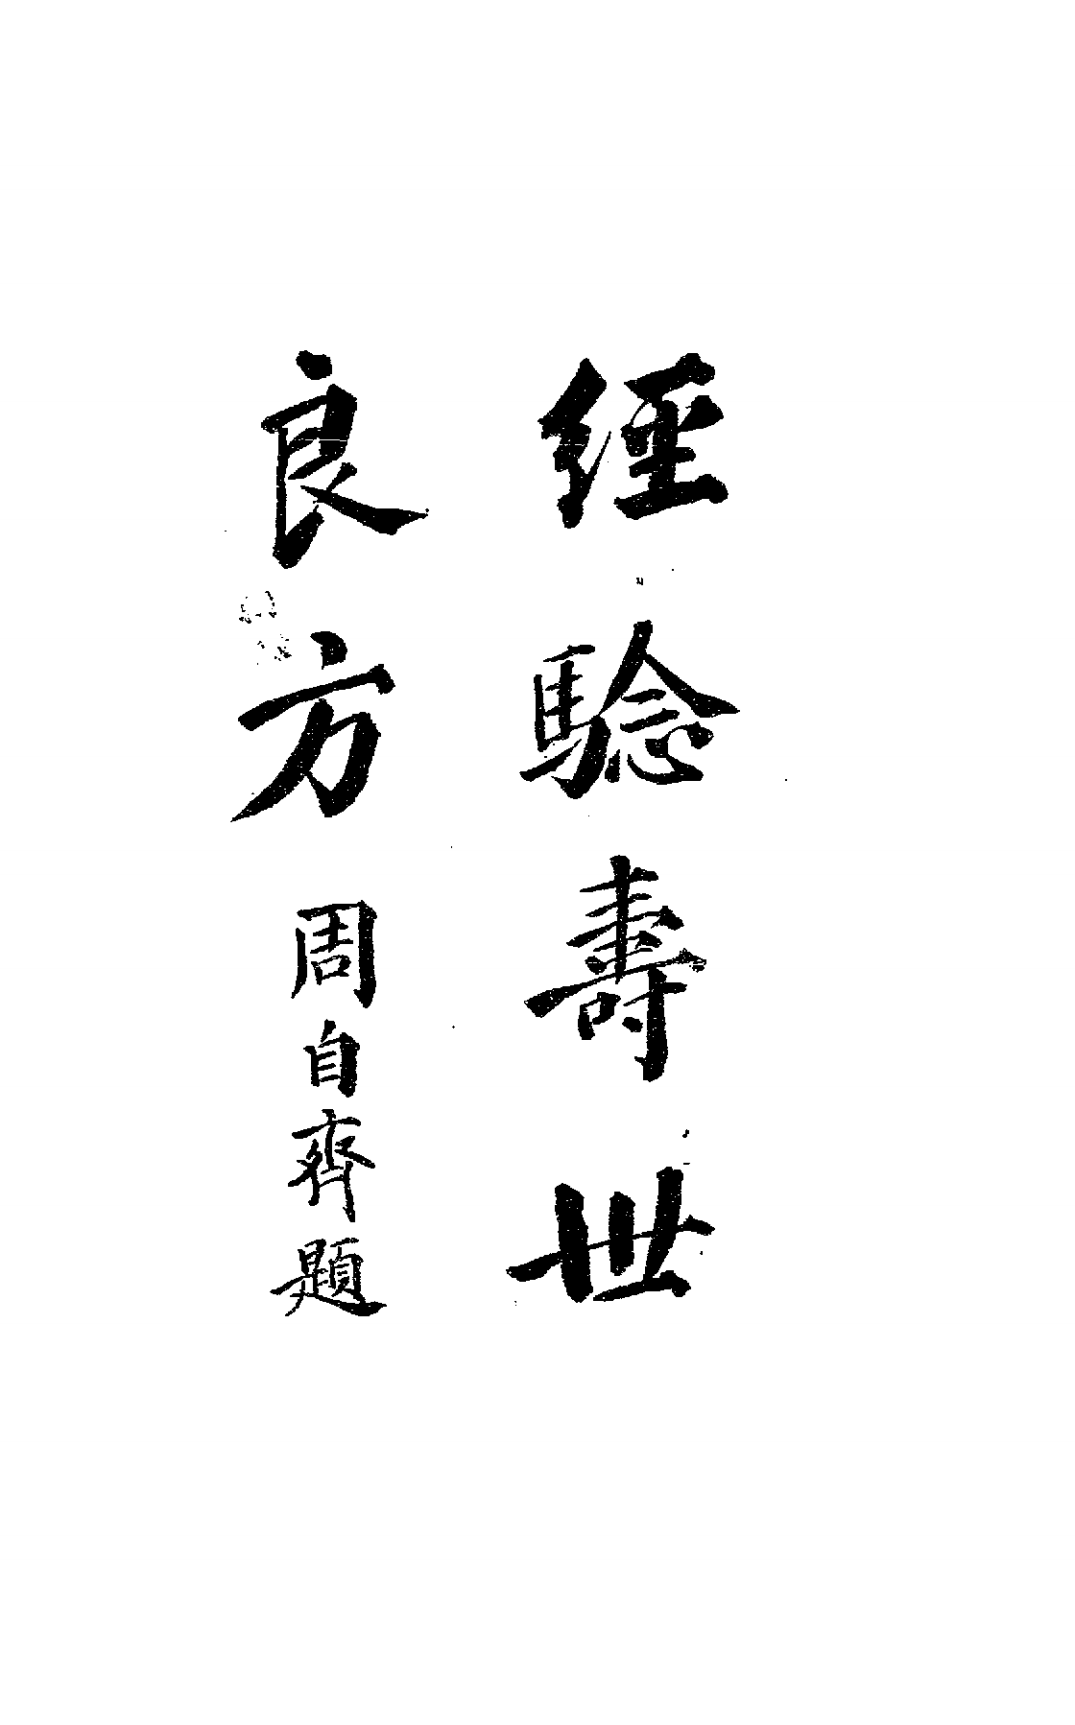 經驗壽世
良方 周自齊題